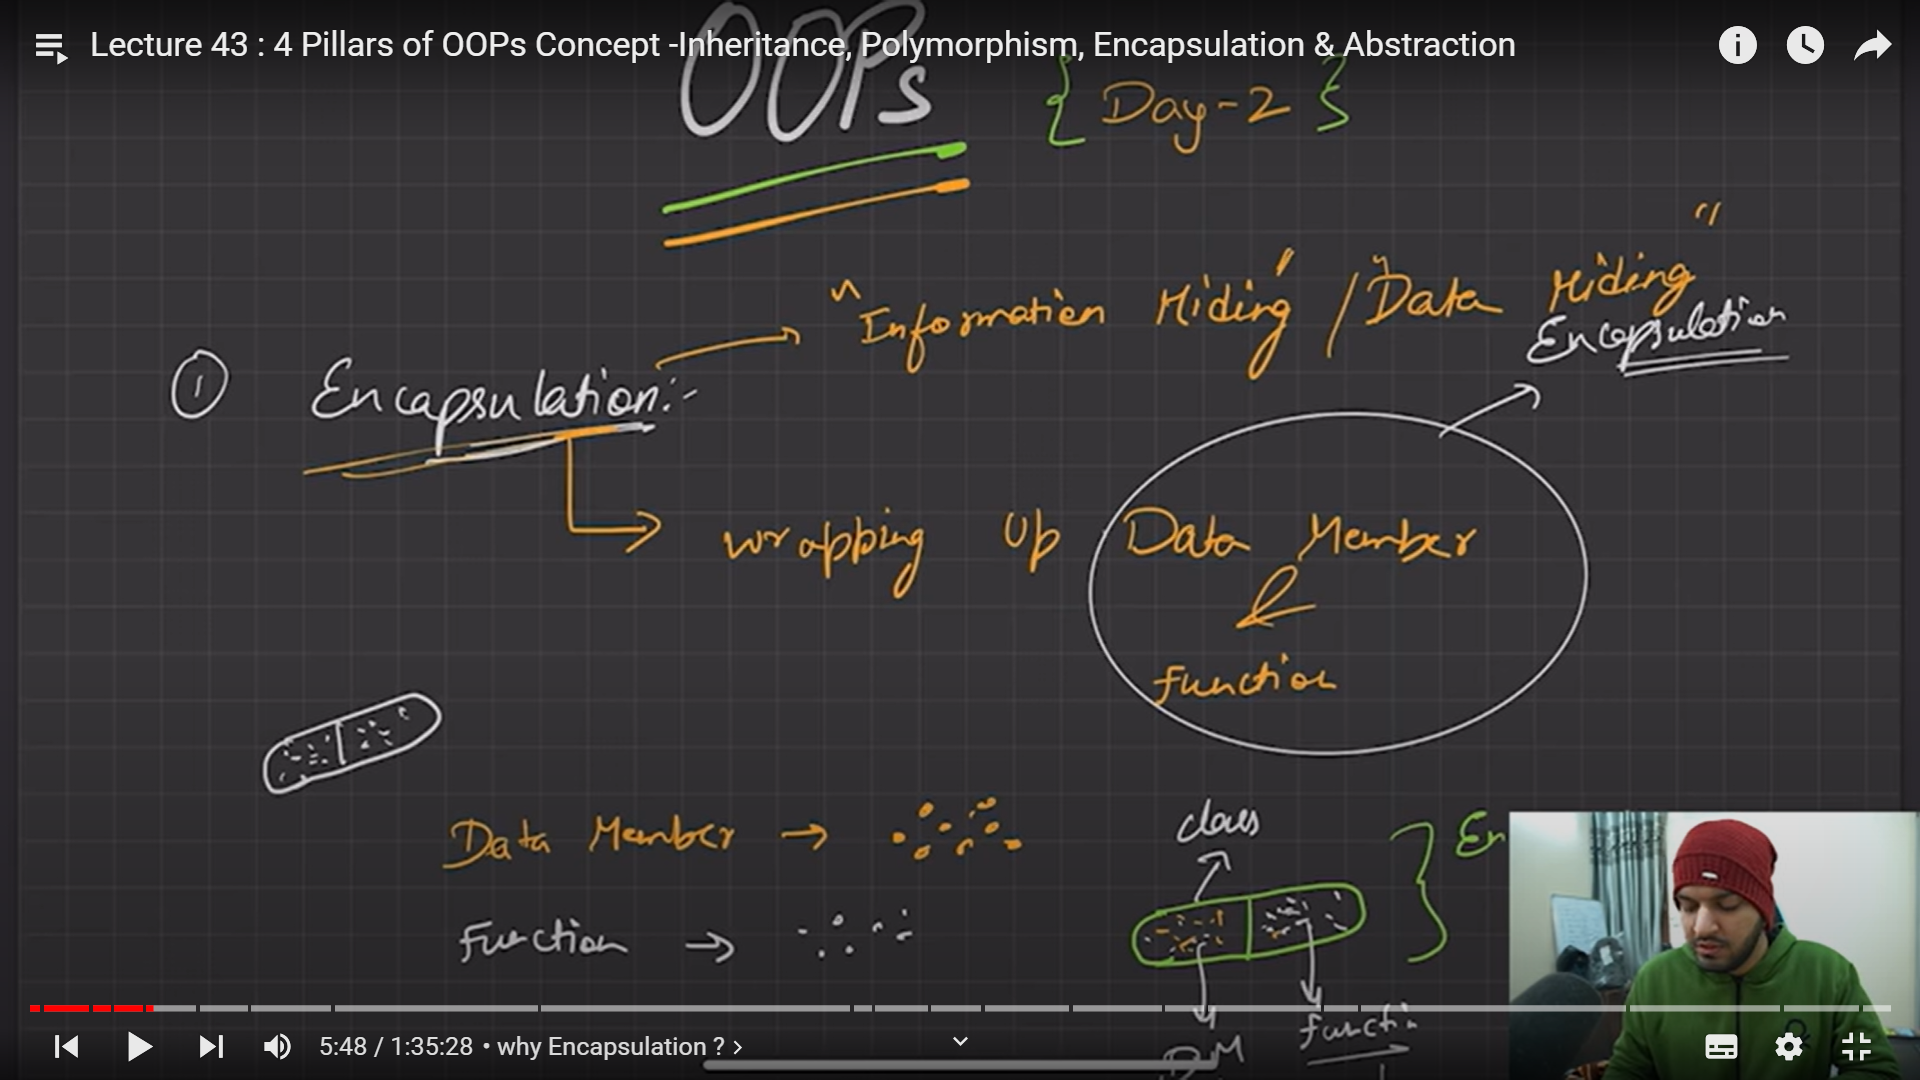 Lecture 43 : 4 Pillars of OOPs Concept -Inheritance, Polymorphism, Encapsulation & Abstraction
OOPs { Day-2 }
① Encapsulation:- → "Information Hiding" / "Data Hiding"
Encapsulation
wrapping up Data Member
&
function
class
Data Member →
En
Function →
functi
DM
5:48 / 1:35:28 • why Encapsulation ? >